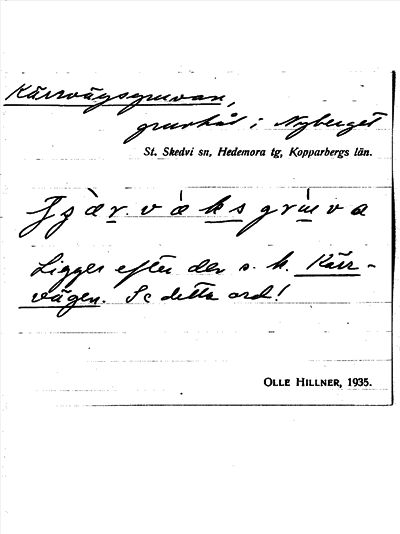 Kärrvägsgruvan,
gruvhål i Nyberget
St. Skedvi sn, Hedemora tg, Kopparbergs län.
Ligger efter den s. k. Kärr-
vägen. Se detta ord!
OLLE HILLNER, 1935.